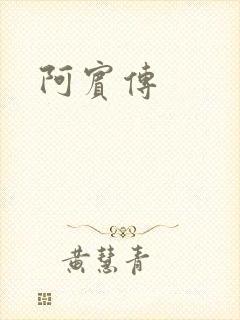 阿賓傳
黃慧青